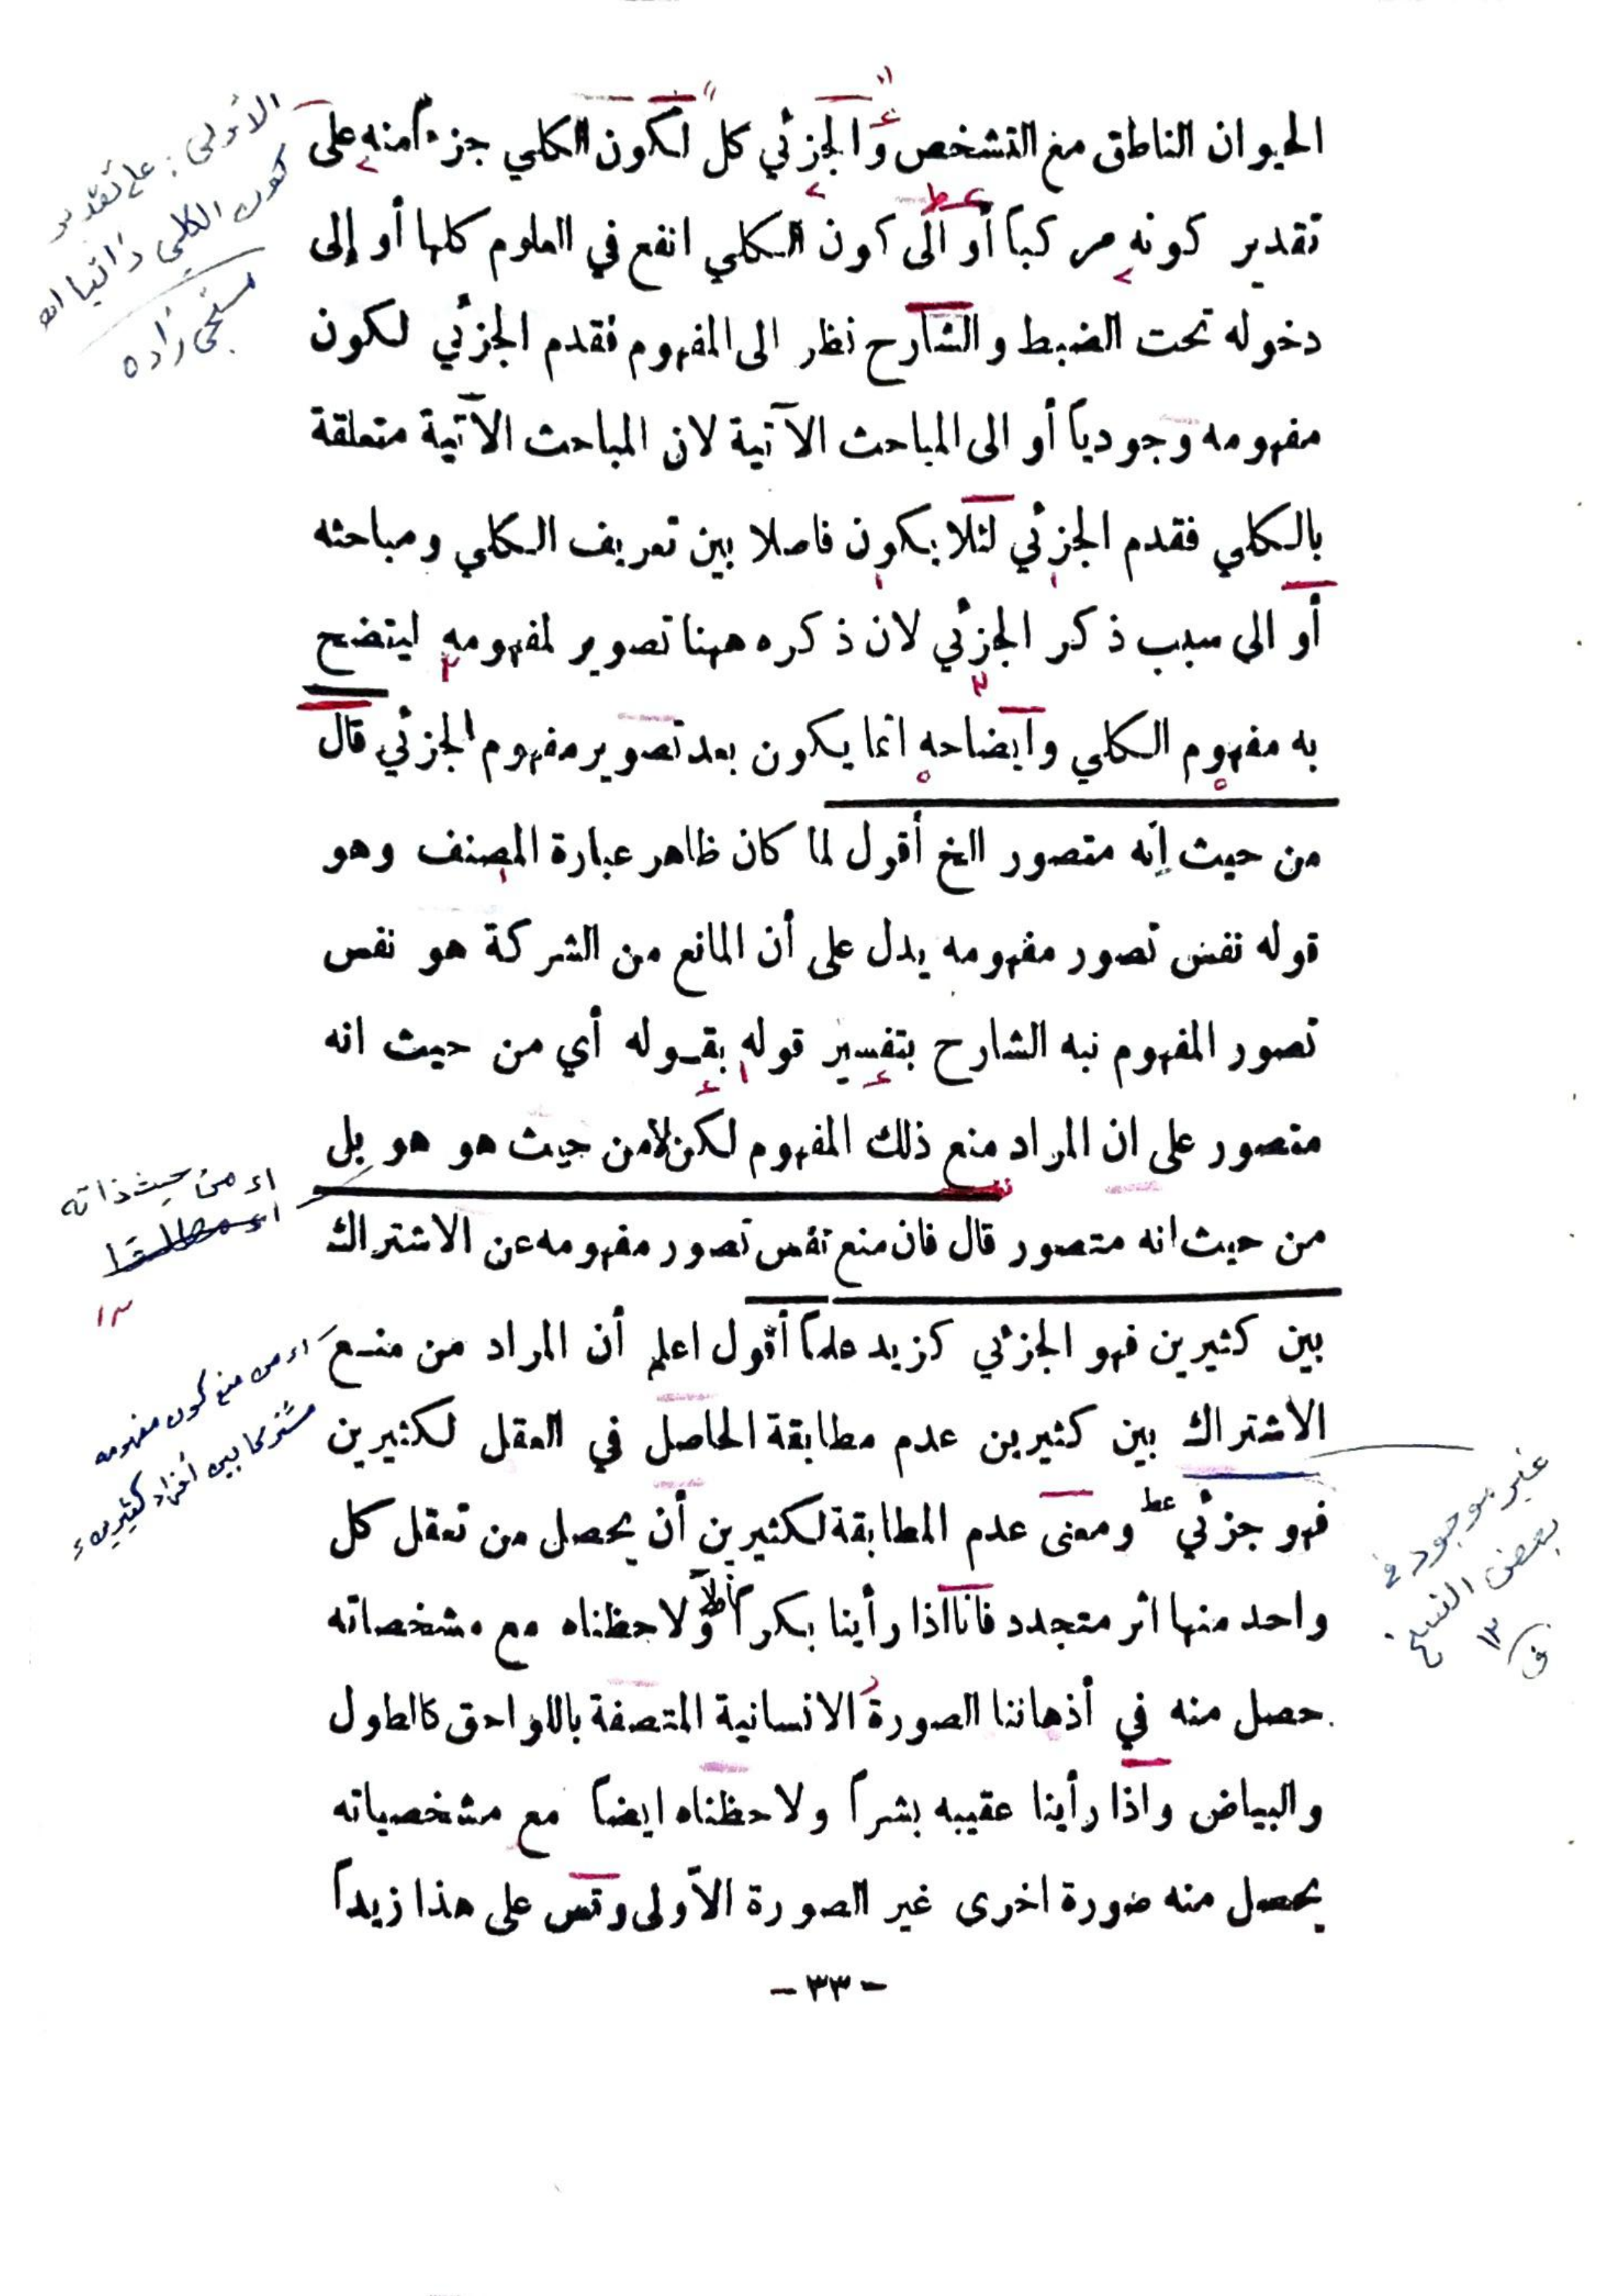 الحيوان الناطق مع التشخص والجزئي كل لكون الكلي جزءاً منه على
تقدير كونه مركباً أو الى كون الكلي انفع في العلوم كلها أو إلى
دخوله تحت الضبط والشارح نظر الى المفهوم فقدم الجزئي لكون
مفهومه وجودياً أو الى المباحث الآتية لان المباحث الآتية متعلقة
بالكلي فقدم الجزئي لئلا يكون فاصلا بين تعريف الكلي ومباحثه
أو الى سبب ذكر الجزئي لان ذكره ههنا تصوير لمفهومه ليتضح
به مفهوم الكلي وايضاحه انما يكون بعد تصوير مفهوم الجزئي قال
من حيث إنه متصور الخ أقول لما كان ظاهر عبارة المصنف وهو
قوله نفس تصور مفهومه يدل على أن المانع من الشركة هو نفس
تصور المفهوم نبه الشارح بتفسير قوله بقوله أي من حيث انه
متصور على ان المراد منع ذلك المفهوم لكن لا من حيث هو هو بل
من حيث انه متصور قال فان منع نفس تصور مفهومه عن الاشتراك
بين كثيرين فهو الجزئي كزيد علماً أقول اعلم أن المراد من منع
الاشتراك بين كثيرين عدم مطابقة الحاصل في العقل لكثيرين
فهو جزئي ومعنى عدم المطابقة لكثيرين أن يحصل من تعقل كل
واحد منها اثر متجدد فانا اذا رأينا بكراً أولاً ولاحظناه مع مشخصاته
حصل منه في أذهاننا الصورة الانسانية المتصفة باللواحق كالطول
والبياض واذا رأينا عقيبه بشراً ولاحظناه ايضاً مع مشخصياته
يحصل منه صورة اخرى غير الصورة الأولى وقس على هذا زيداً
- ٣٣ -
الأولى: على تقدير
كون الكلي ذاتيا اهـ
اى من حيث ذاته
١٢
اى من منع كون مفهومه
مشتركا بين أفراد كثيرين
غير موجود في
بعض النسخ
١٢